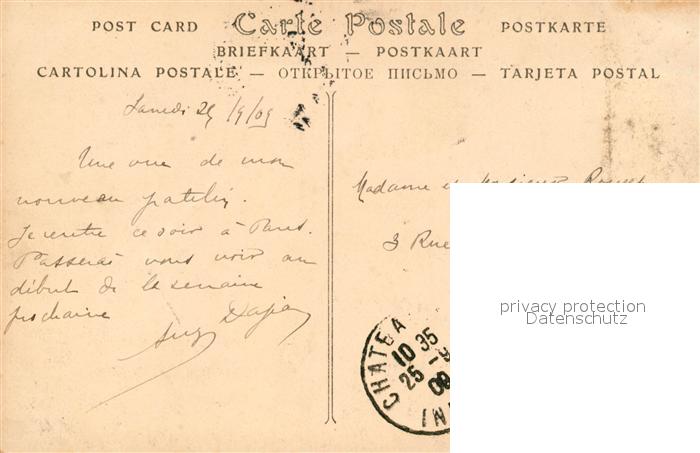 POST CARD Carte Postale POSTKARTE
BRIEFKAART — POSTKAART
CARTOLINA POSTALE — ОТКРЫТОЕ ПИСЬМО — TARJETA POSTAL
Samedi 25/9/09
Une vue de mon
nouveau patelin.
Je rentre ce soir à Paris.
Passerai vous voir au
début de la semaine
prochaine
Madame et Monsieur
3 Rue
CHATEA
10 35
25 -9
09
privacy protection
Datenschutz